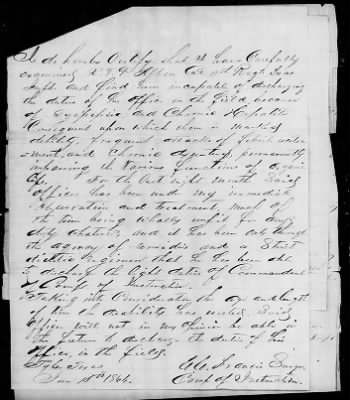 I do hereby Certify that I have Carefully
examined Regt Texas
Inft. and find him incapable of discharging
the duties of his Office in the field, because
of Dyspepsia and Chronic Hepatitis
Consequent upon which there is marked
debility, frequent attacks of
and Chronic permanently
impairing the Various functions of
life. For the last eight months Said
officer has been under my immediate
observation and treatment, much of
the time being wholly unfit for any
duty whatever, and it has been only through
the agency of remedies and a Strict
Regimen that he has been able
to discharge the light duties of Commandant
of Camp of Instruction.
Taking into Consideration the age and length
of time his disability has existed, Said
Officer will not in my Opinion be able in
the future to discharge the duties of his
Office, in the field.
Texas Francis Surgn
Jan 1864. Camp of Instruction